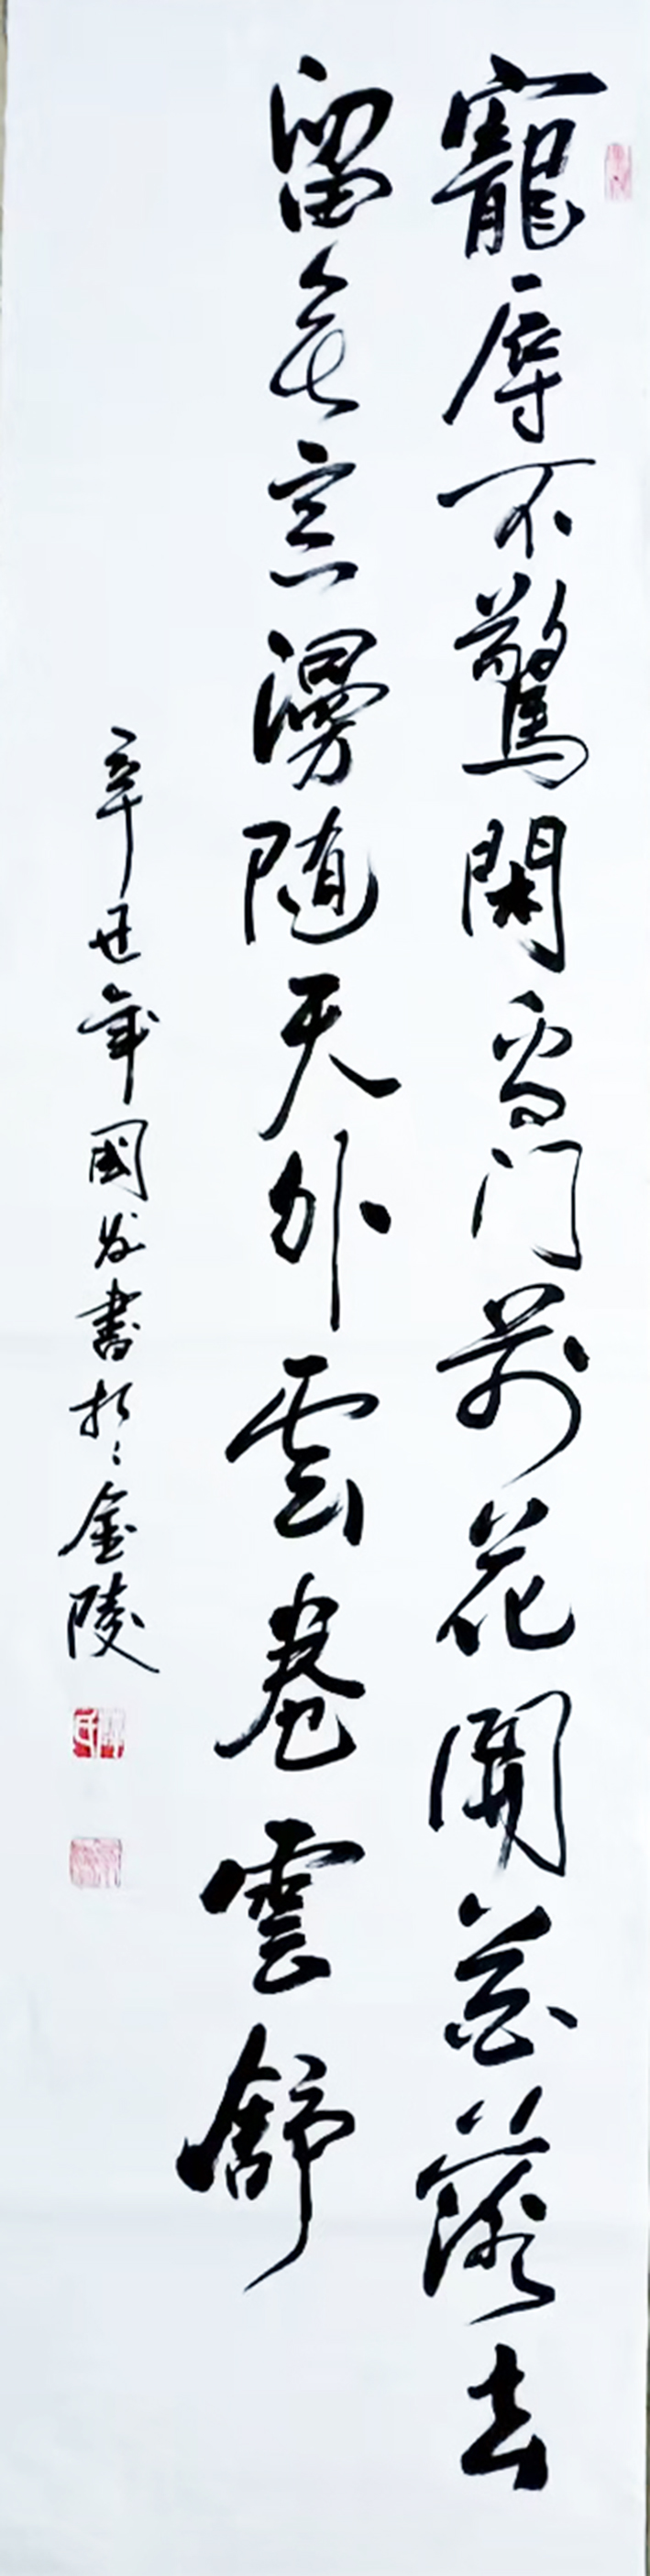 寵辱不驚閑看門前花開花落去
留無意漫随天外雲卷雲舒
辛丑年國发書於金陵